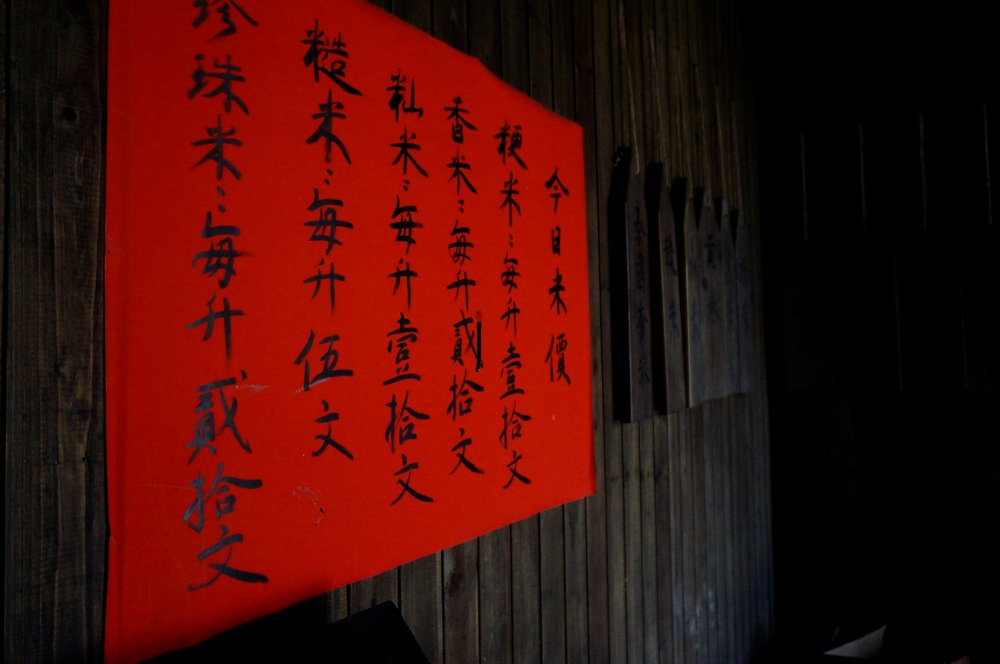 今日米價
粳米：每升壹拾文
香米：每升貳拾文
籼米：每升壹拾文
糙米：每升伍文
珍珠米：每升貳拾文